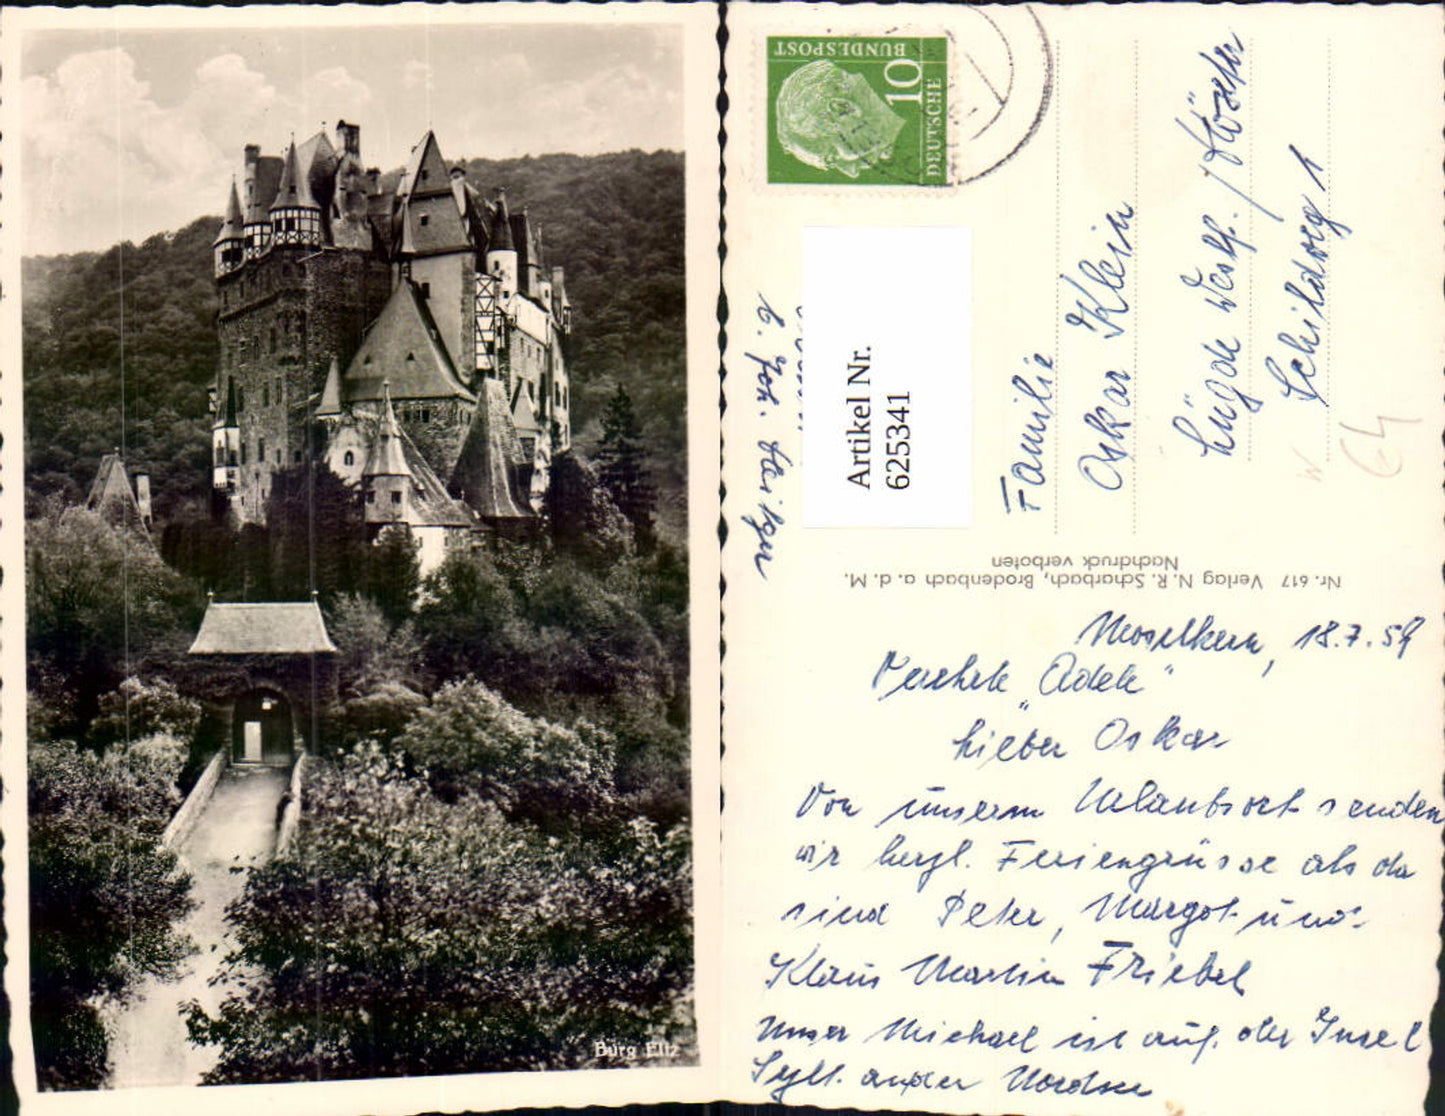 Burg Eltz
DEUTSCHE
BUNDESPOST
10
Artikel Nr.
625341
b. Joh.
Familie
Oskar Klein
Lügde Westf. / Höxter
Schildweg 1
Nr. 617 Verlag N. R. Scharbach, Brodenbach a. d. M.
Nachdruck verboten
Moselkern, 18.7.59
Verehrte "Adele"
Lieber Oskar
Von unserm Urlaubsort senden
wir herzl. Feriengrüsse als da
sind Peter, Margot und
Klaus Martin Friebel
Unser Michael ist auf der Insel
Sylt an der Nordsee